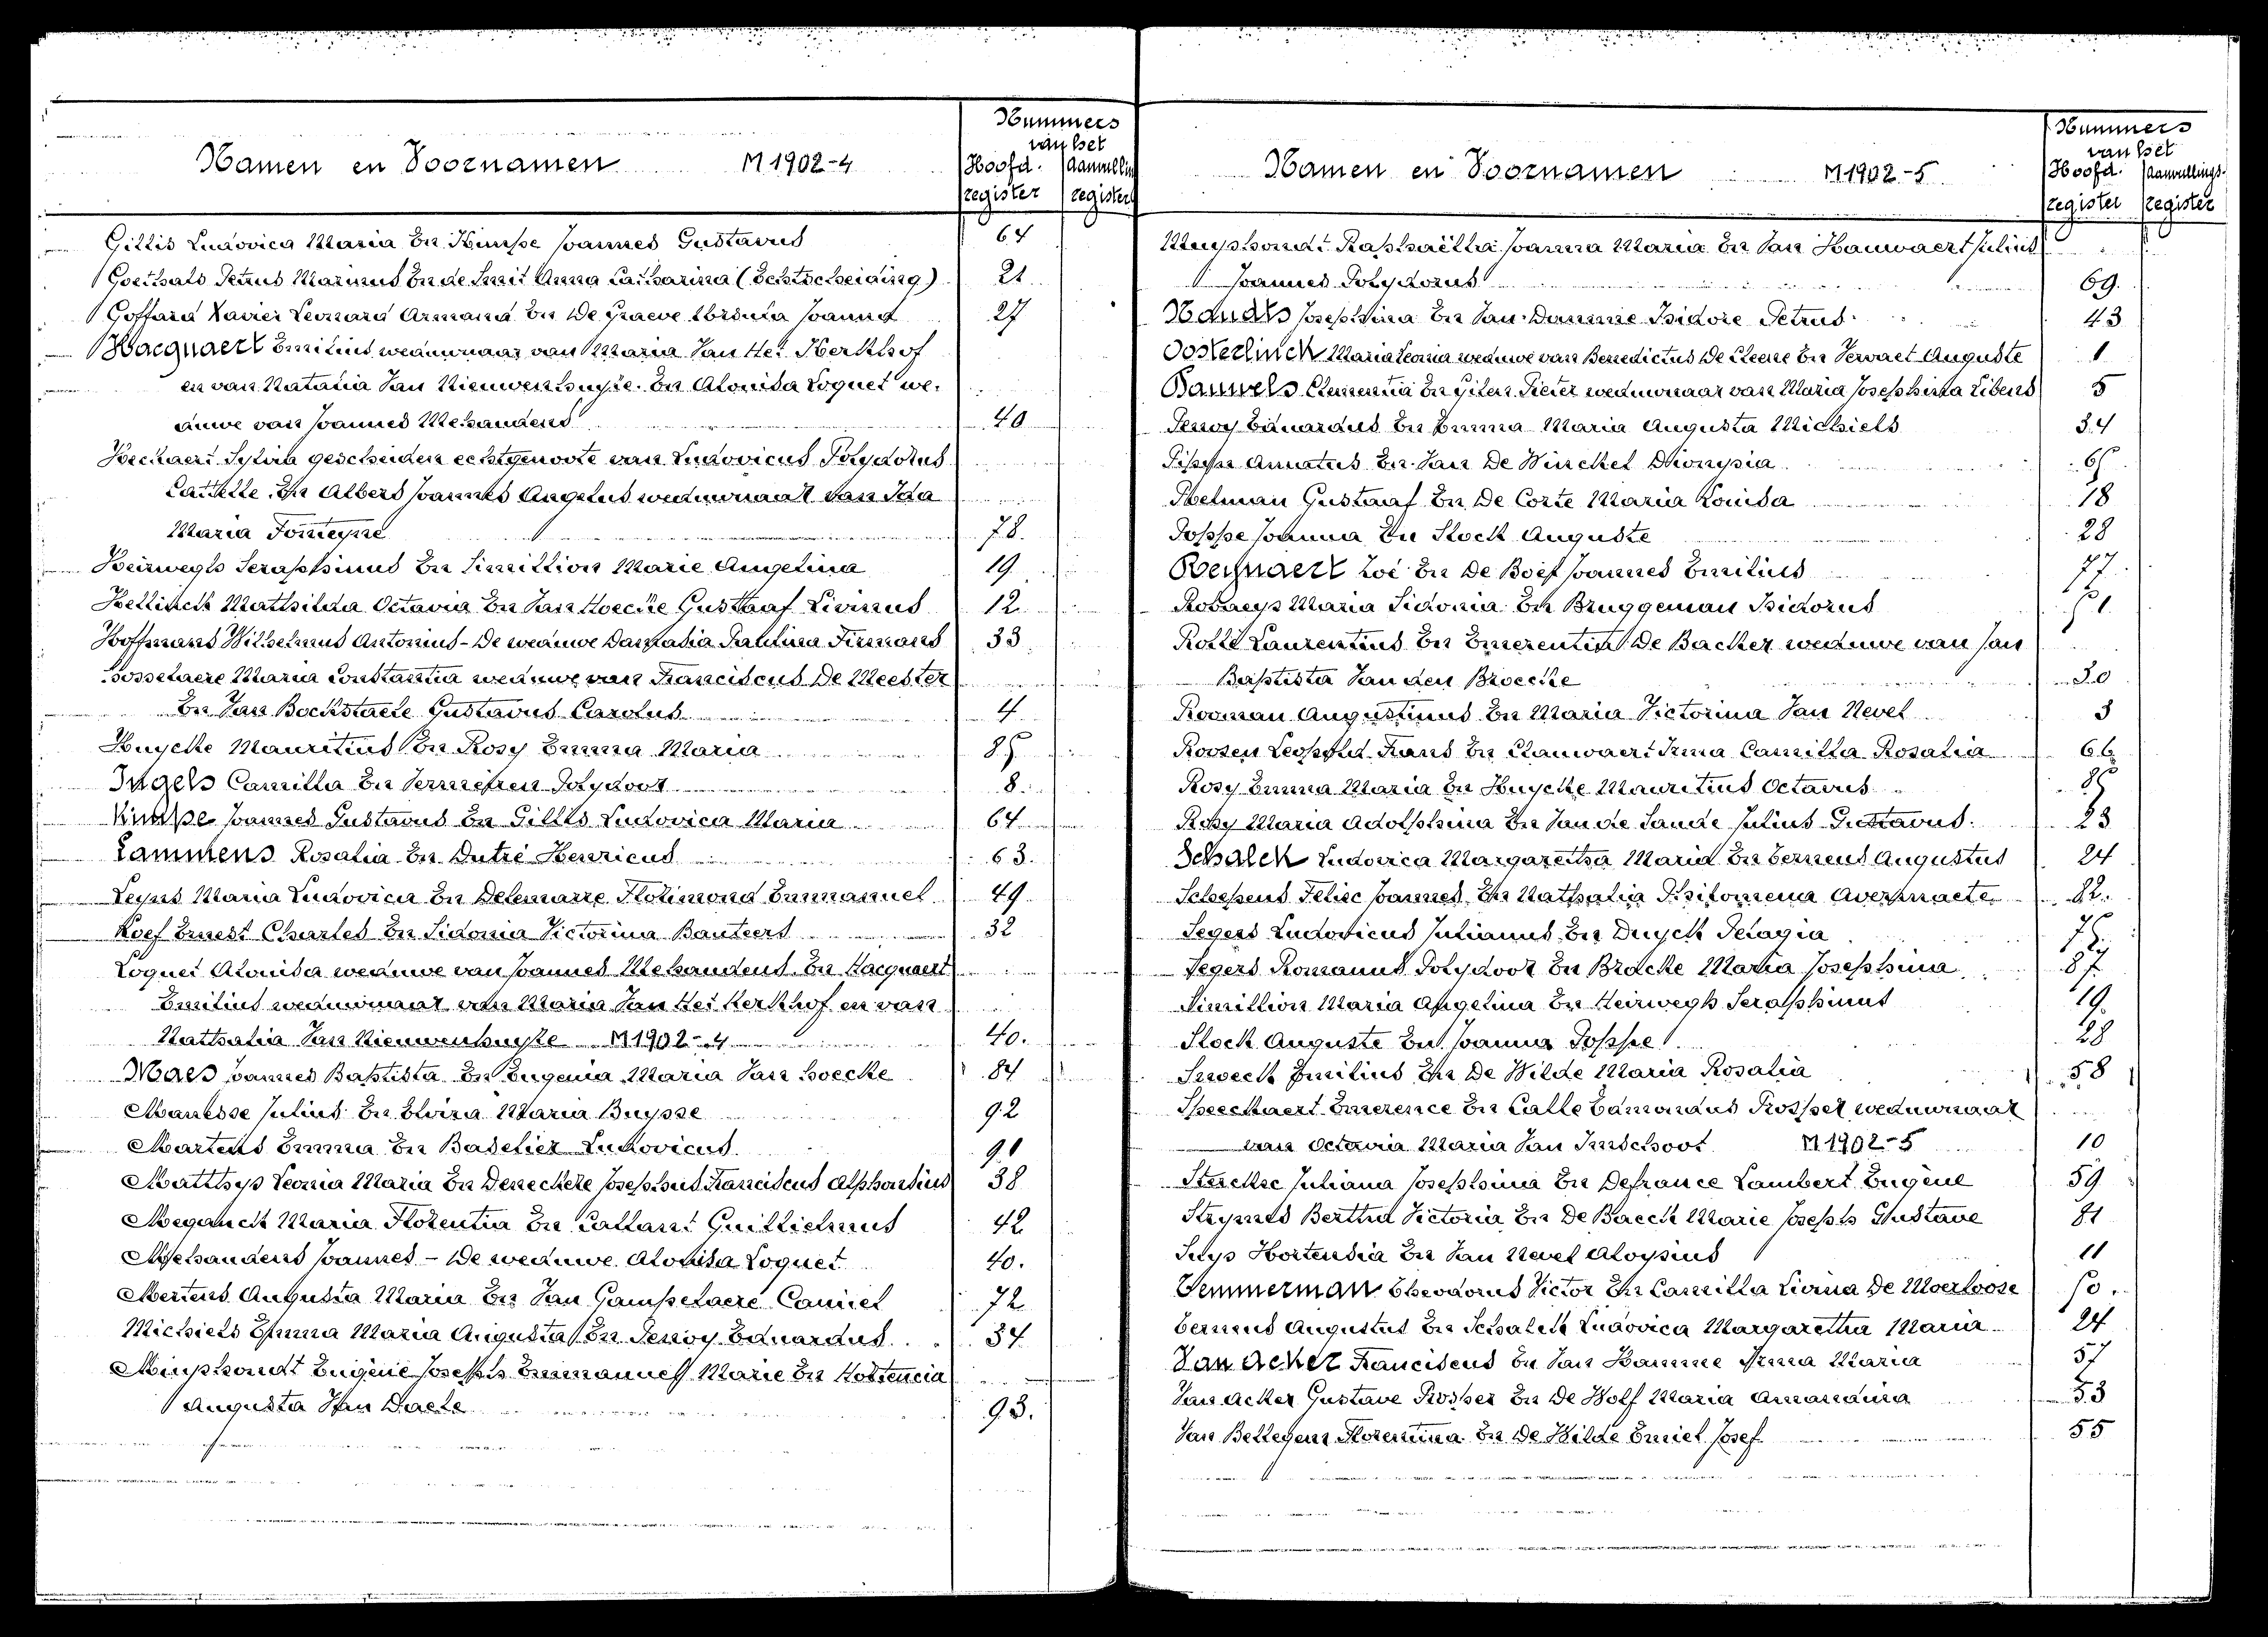 Nummers
van het
Namen en Voornamen M1902-4 Hoofd. Aanvulling
register register
Gillis Ludovica Maria En Knuppe Joannes Gustavus 64
Goethals Petrus Marinus En de Smit Anna Catharina (Echtscheiding) 21
Goffard Xavier Leonard Armand En De Graeve Joanna 27
Hacquaert Emilius weduwnaar van Maria Van Het Kerkhof
en van Natalia Van Nieuwenhuyse En Alonida Loquet we.
duwe van Joannes Mehaudens 40
Heckaert Sylvia gescheiden echtgenoote van Ludovicus Polydorus
Callelle. En Albers Joannes Angelus weduwnaar van Ida
Maria Fonteyne 78.
Heirwegh Seraphinus En Simillion Marie Angelina 19
Hellinck Mathilda Octavia En Van Hoecke Gustaaf Livinus 12
Hoffmans Wilhelmus Antonius - De weduwe Paulina Firmans 33
Hosselaere Maria Constantia weduwe van Franciscus De Meester
En Van Bockstaele Gustavus Carolus 4
Huycke Mauritius En Rosy Emma Maria 85
Ingels Camilla En Vermeiren Polydoor 8
Knuppe Joannes Gustavus En Gillis Ludovica Maria 64
Lammens Rosalia En Dutré Henricus 63.
Leyns Maria Ludovica En Delemarre Florimond Emmanuel 49
Loef Ernest Charles En Sidonia Victorina Bauters 32
Loquet Alonida weduwe van Joannes Mehaudens En Hacquaert
Emilius weduwnaar van Maria Van Het Kerkhof en van
Nathalia Van Nieuwenhuyse M1902-4 40.
Maes Joannes Baptista En Eugenia Maria Van Hoecke 84
Manesse Julius En Elvira Maria Buysse 92
Martens Emma En Baselier Ludovicus 91
Matthys Leonia Maria En Deneckere Josephus Franciscus Alphonsius 38
Meganck Maria Florentia En Callant Guillielmus 42
Mehaudens Joannes - De weduwe Alonida Loquet 40.
Mertens Augusta Maria En Van Gampelaere Camiel 72
Michiels Emma Maria Augusta En Pernoy Eduardus 34
Minphondt Eugène Joseph Emmanuel Marie En Hortencia
Augusta Van Daele 93.
Nummers
van het
Namen en Voornamen M1902-5 Hoofd. Aanvullings-
register register
Muyshondt Raphaëlla Joanna Maria En Van Hauwaert Julius
Joannes Polydorus 69.
Nauds Josephina En Van Damme Isidore Petrus 43
Oosterlinck Maria Leonia weduwe van Benedictus De Cleene En Vervaet Auguste 1
Pauwels Clementia En Gilen Pieter weduwnaar van Maria Josephina Libens 5
Pernoy Eduardus En Emma Maria Augusta Michiels 34
Pipyn Amatus En Van De Winckel Dionysia 6
Poelman Gustaaf En De Corte Maria Louisa 18
Poppe Joanna En Stock Auguste 28
Reynaert Zoé En De Boef Joannes Emilius 77
Robaeys Maria Sidonia En Bruggeman Isidorus
Rollé Laurentius En Emerentia De Backer weduwe van Jan
Baptista Van den Broecke 20
Rooman Augustinus En Maria Victorina Van Nevel 3
Roosen Leopold Frans En Clauwaert Irma Camilla Rosalia 66
Rosy Emma Maria En Huycke Mauritius Octavus 85
Rosy Maria Adolphina En Van de Sande Julius Gustavus. 23
Schalck Ludovica Margaretha Maria En Ternens Augustus 24
Schepens Felix Joannes En Nathalia Philomena Avermaete 22.
Segers Ludovicus Julianus En Duyck Pelagia 75
Segers Romanus Polydoor En Bracke Maria Josephina 87
Simillion Maria Angelina En Heirwegh Seraphinus 19
Stock Auguste En Joanna Poppe 28
Snoeck Emilius En De Wilde Maria Rosalia 58
Speeckaert Emerence En Calle Edmondus Prosper weduwnaar
van Octavia Maria Van Imschoot M1902-5 10
Sterckse Juliana Josephina En Defrance Lambert Eugène 59
Strymes Bertha Victoria En De Baeck Marie Joseph Gustave 81
Suys Hortensia En Van Nevel Aloysius 11
Temmerman Theodorus Victor En Camilla Livina De Moerloose
Ternens Augustus En Schalck Ludovica Margaretha Maria 24
Van Acker Franciscus En Van Damme Irma Maria 57
Van Acker Gustave Prosper En De Wolf Maria Amandina 53
Van Bellegem Florentina En De Wilde Emiel Josef 55